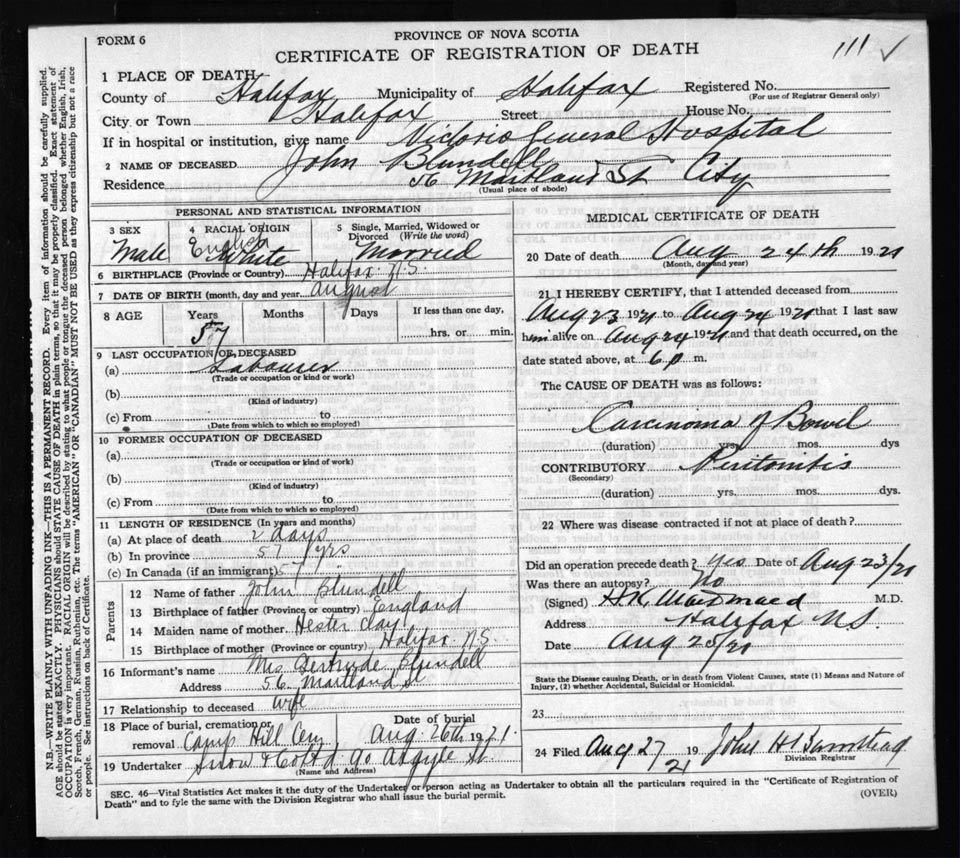 FORM 6
PROVINCE OF NOVA SCOTIA
CERTIFICATE OF REGISTRATION OF DEATH
111 ✓
1 PLACE OF DEATH
County of Halifax Municipality of Halifax Registered No.
(For use of Registrar General only)
City or Town Halifax Street House No.
If in hospital or institution, give name Victoria General Hospital
2 NAME OF DECEASED John Blundell
Residence 56 Maitland St City
(Usual place of abode)
PERSONAL AND STATISTICAL INFORMATION
3 SEX Male
4 RACIAL ORIGIN English White
5 Single, Married, Widowed or Divorced (Write the word) Married
6 BIRTHPLACE (Province or Country) Halifax N.S.
7 DATE OF BIRTH (month, day and year) August
8 AGE Years 57 Months Days If less than one day, hrs. or min.
9 LAST OCCUPATION OF DECEASED
(a) Labourer
(Trade or occupation or kind or work)
(b)
(Kind of industry)
(c) From to
(Date from which to which so employed)
10 FORMER OCCUPATION OF DECEASED
(a)
(Trade or occupation or kind of work)
(b)
(Kind of industry)
(c) From to
(Date from which to which so employed)
11 LENGTH OF RESIDENCE (In years and months)
(a) At place of death 2 days
(b) In province 57 yrs
(c) In Canada (if an immigrant) 57
Parents
12 Name of father John Blundell
13 Birthplace of father (Province or country) England
14 Maiden name of mother Hester Clay
15 Birthplace of mother (Province or country) Halifax N.S.
16 Informant's name Mrs Gertrude Blundell
Address 56 Maitland St
17 Relationship to deceased Wife
18 Place of burial, cremation or removal Camp Hill Cem Date of burial Aug 26th 1921.
19 Undertaker Snow & Co Ltd 90 Argyle St.
(Name and Address)
MEDICAL CERTIFICATE OF DEATH
20 Date of death Aug 24th 1921
(Month, day and year)
21 I HEREBY CERTIFY, that I attended deceased from
Aug 23 1921 to Aug 24 1921 that I last saw
him alive on Aug 24 1921 and that death occurred, on the
date stated above, at 6 p m.
The CAUSE OF DEATH was as follows:
Carcinoma of Bowel
(duration) yrs. mos. dys
CONTRIBUTORY Peritonitis
(Secondary)
(duration) yrs. mos. dys.
22 Where was disease contracted if not at place of death?
Did an operation precede death? Yes Date of Aug 23/21
Was there an autopsy? No
(Signed) H.K. MacDonald M.D.
Address Halifax N.S.
Date Aug 25/21
State the Disease causing Death, or in death from Violent Causes, state (1) Means and Nature of
Injury, (2) whether Accidental, Suicidal or Homicidal.
23
24 Filed Aug 27/21 19 John H Barnstead
Division Registrar
SEC. 46—Vital Statistics Act makes it the duty of the Undertaker or person acting as Undertaker to obtain all the particulars required in the "Certificate of Registration of
Death" and to fyle the same with the Division Registrar who shall issue the burial permit.
(OVER)
N.B.—WRITE PLAINLY WITH UNFADING INK—THIS IS A PERMANENT RECORD. Every item of information should be carefully supplied.
AGE should be stated EXACTLY. PHYSICIANS should STATE CAUSE OF DEATH in plain terms, so that it may be properly classified. Exact statement of
OCCUPATION is very important. RACIAL ORIGIN will be described by stating to what people or tongue the deceased person belonged, whether English, Irish,
Scotch, French, German, Russian, Ruthenian, etc. The terms "AMERICAN" OR "CANADIAN" MUST NOT BE USED as they express citizenship but not a race
or people. See instructions on back of Certificate.